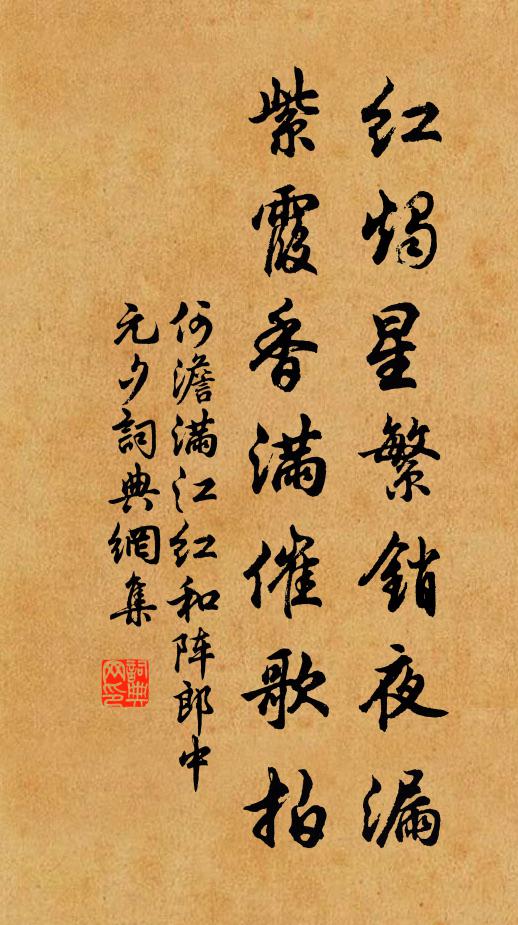 红烛星繁销夜漏
紫霞香满催歌拍
何澹满江红和阵郎中
元夕詞典網集
詞典
网印